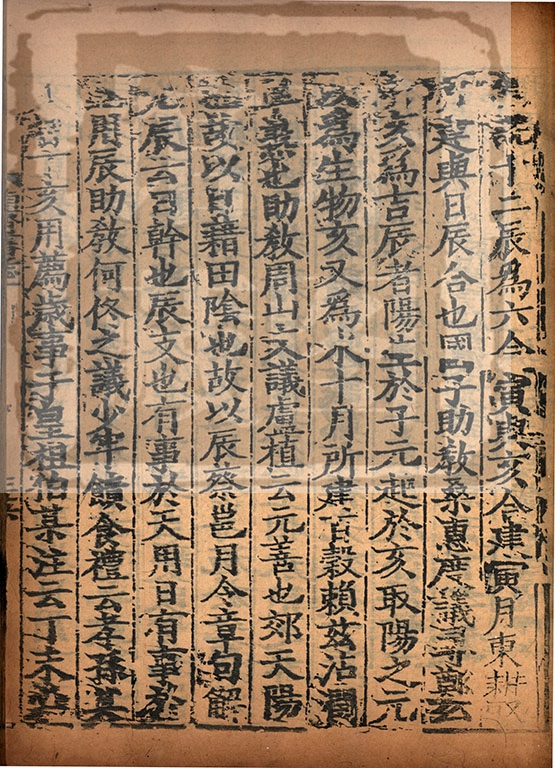 說十二辰為六合寅與亥合建寅月東耕取
建與日辰合也國子助教桑惠度議尋鄭玄
亥為吉辰者陽生於子元起於亥取陽之元
以為生物亥又為水十月所建百穀賴茲沾潤
畢熟也助教周山文議盧植云元善也郊天陽
也故以日藉田陰也故以辰蔡邕月令章句解
元辰云日幹也辰支也有事於天用日有事於
用辰助教何佟之議少牢饋食禮云孝孫某
日丁亥用薦歲事于皇祖伯某注云丁未必